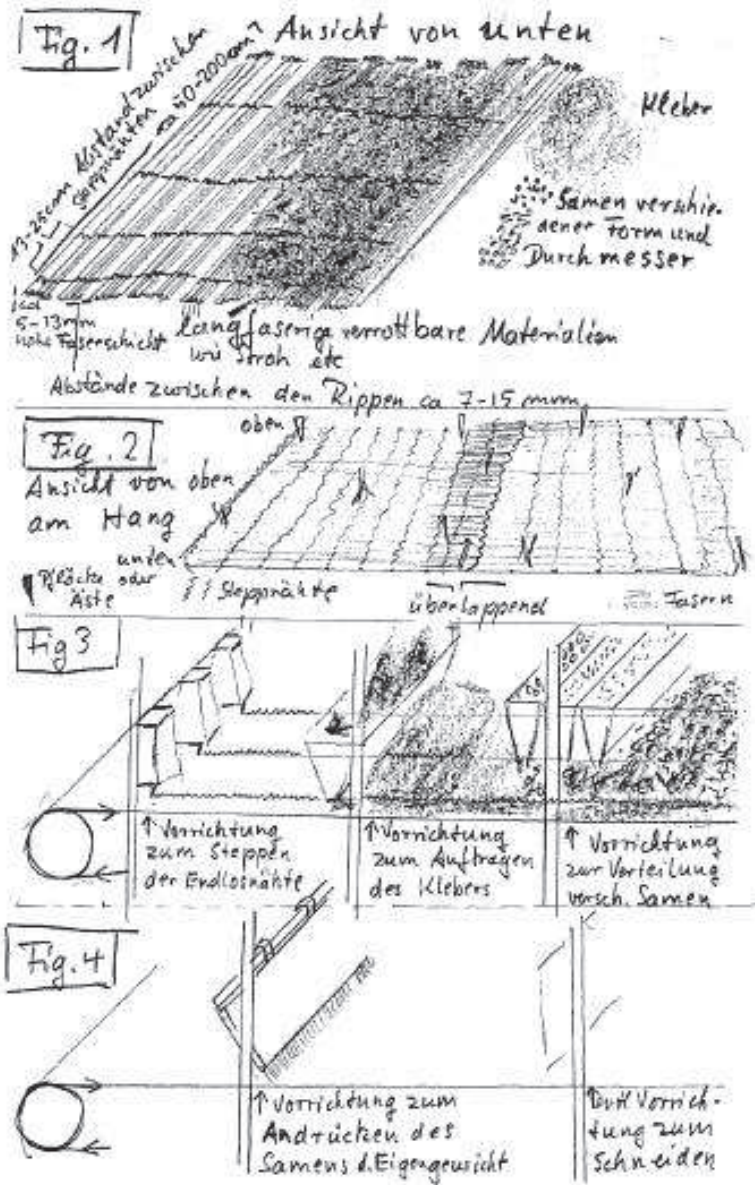 Fig. 1
Ansicht von unten
Abstand zwischen
Steppnähten
ca 40-200cm
Kleber
Samen verschie-
dener Form und
Durchmesser
ca
5-13mm
hohe Faserschicht
langfaserige verrottbare Materialien
wie Stroh etc
Abstände zwischen den Rippen ca 7-15 mm
Fig. 2
oben
Ansicht von oben
am Hang
unten
Pflöcke oder
Äste
Steppnähte
überlappend
Fasern
Fig 3
↑ Vorrichtung
zum Steppen
der Endlosnähte
↑ Vorrichtung
zum Auftragen
des Klebers
↑ Vorrichtung
zur Verteilung
versch. Samen
Fig. 4
↑ Vorrichtung zum
Andrücken des
Samens d. Eigengewicht
↑ Vorrich-
tung zum
Schneiden